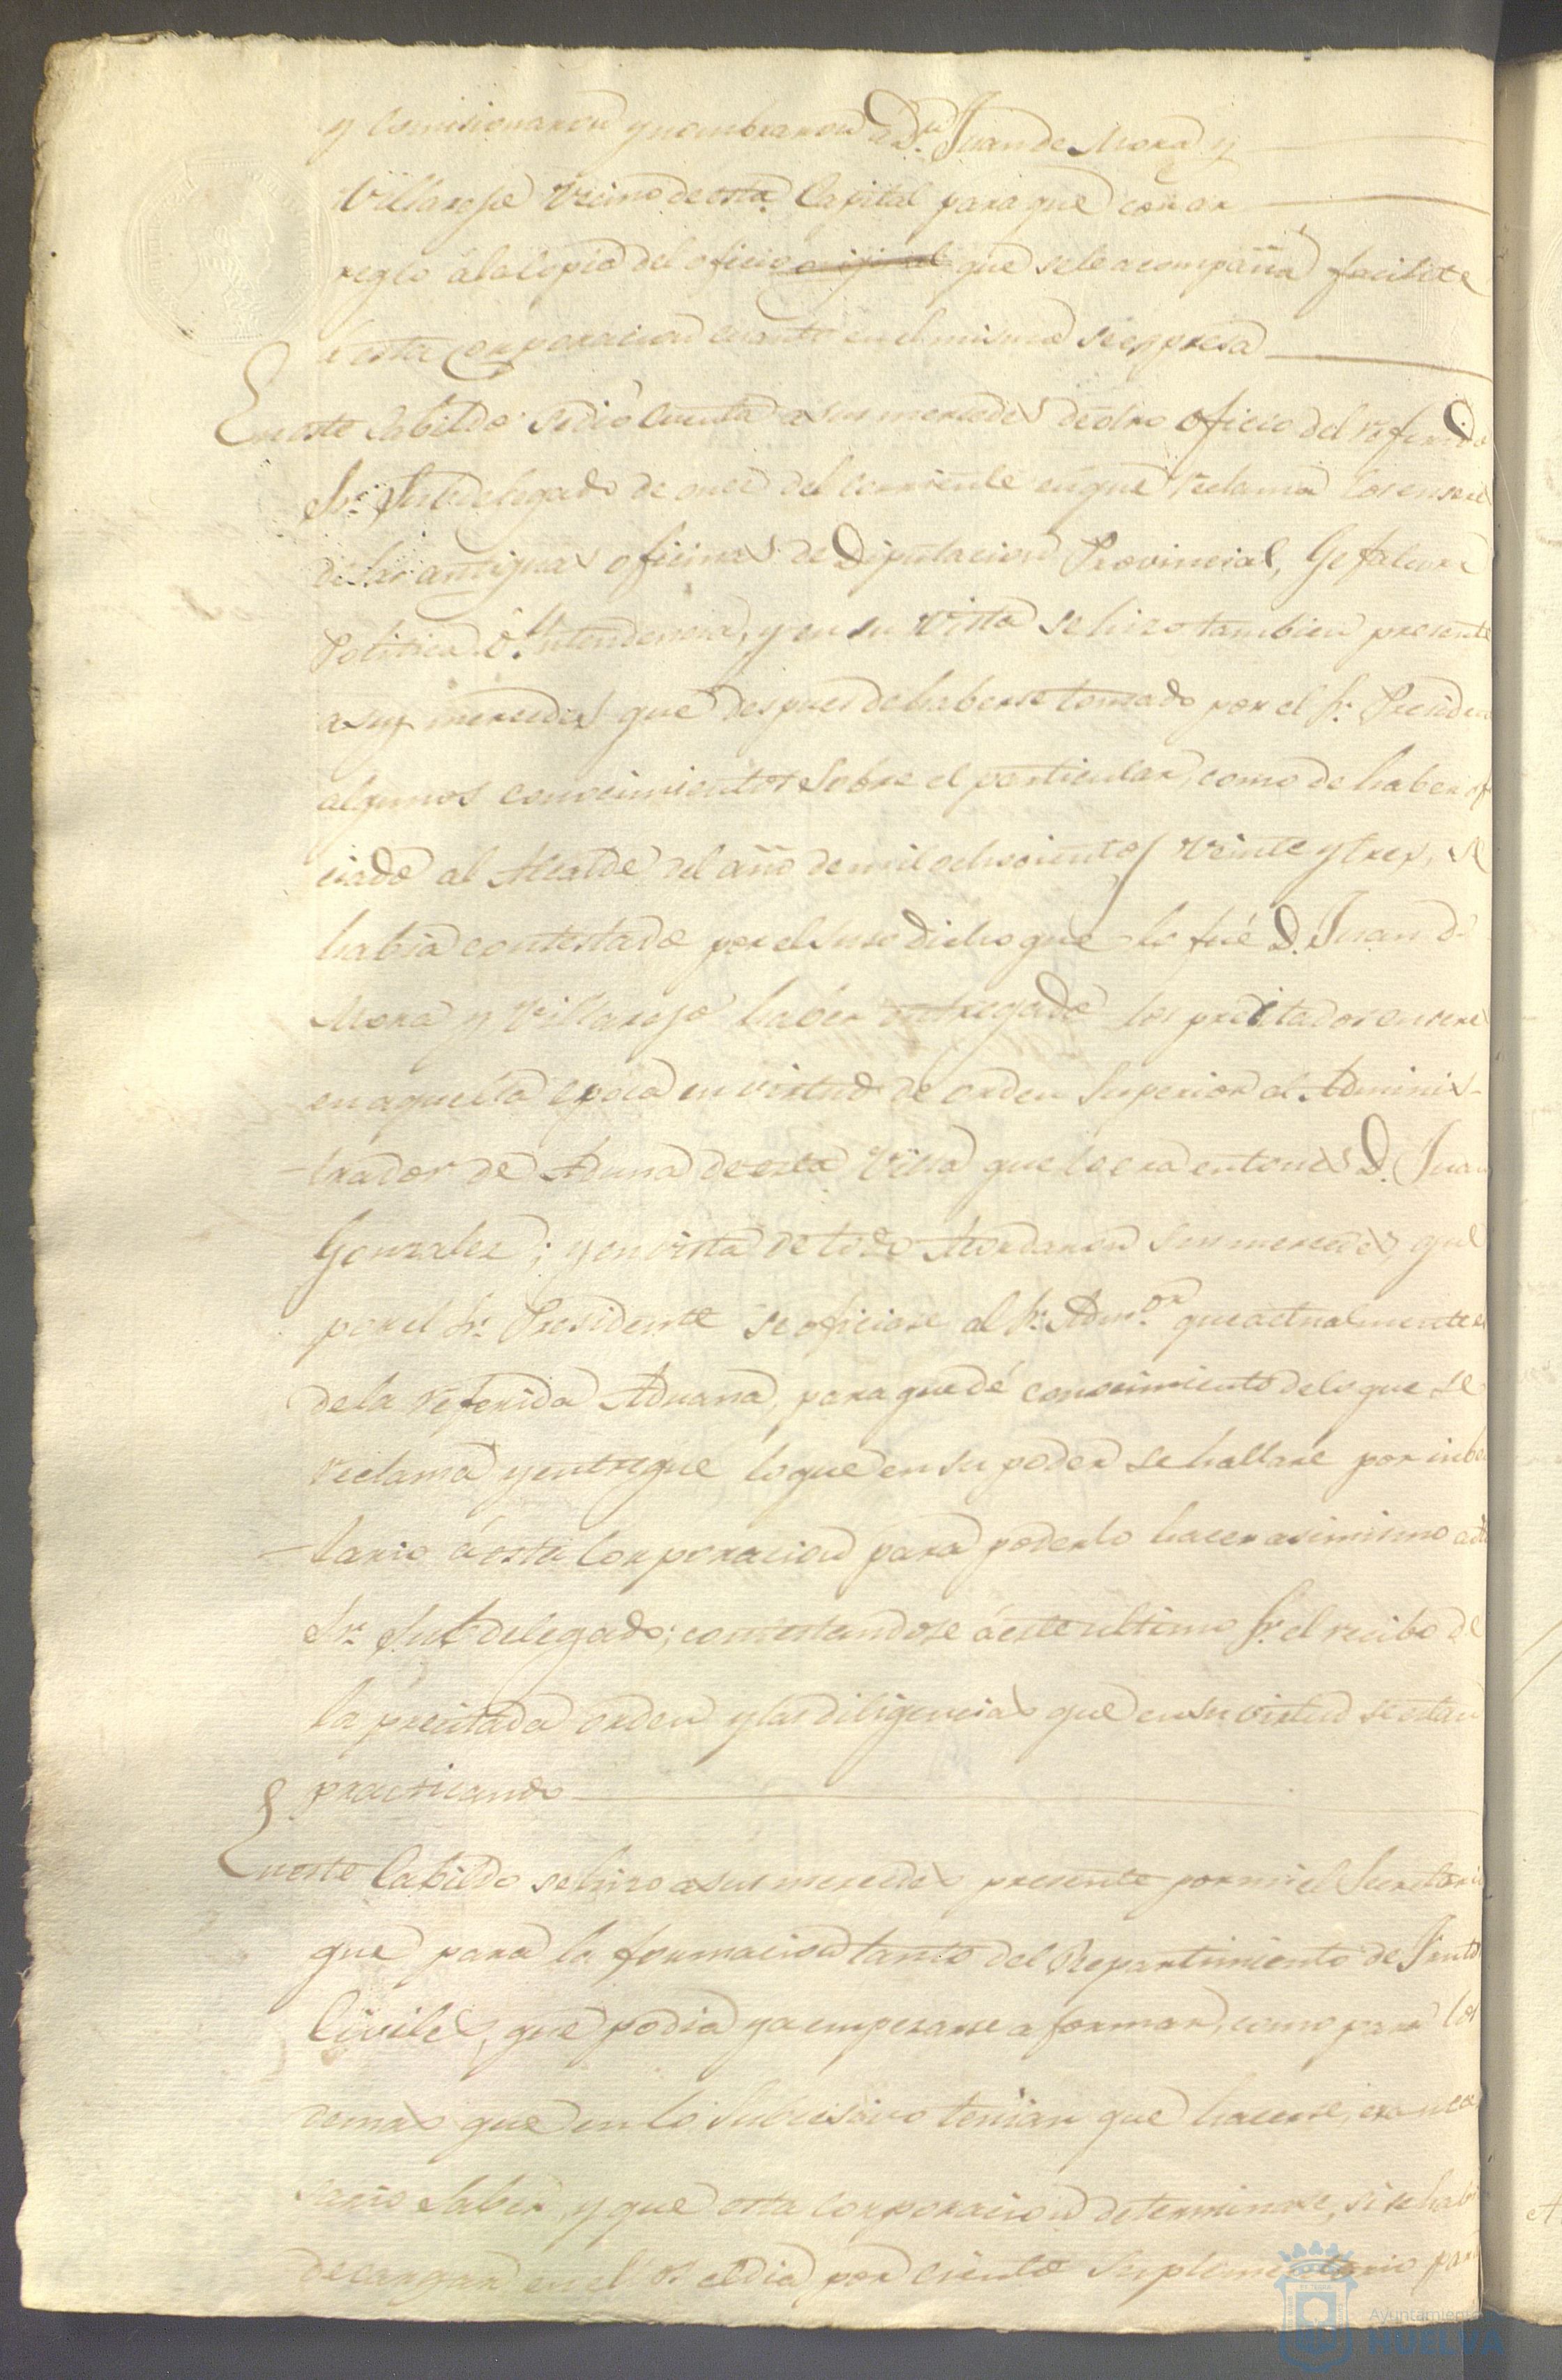 y comisionaron y nombraron a Dn. Juan de Mora y
Villarejo vecino de esta Capital para que con ar
reglo á la Copia del oficio original que se le acompaña facilite
á esta corporacion cuanto en el mismo se espresa
En este Cabildo se dió cuenta a sus mercedes de otro oficio del referido
Sr. Subdelegado de once del corriente en que reclama los enseres
de las antiguas oficinas de Diputacion Provincial, Gefatura
Politica é Yntendencia, y en su vista se hizo tambien presente
a sus mercedes que despues de haberse tomado por el Sr. Presiden
algunos conocimientos sobre el particular, como de haber ofi
ciado al Alcalde del año de mil ochocientos veinte y tres, se
habia contestado por el suso dicho que lo fué D. Juan de
Mora y Villarejo haber entregado los precitados enseres
en aquella epoca en virtud de orden superior al Adminis-
trador de Aduna de esta Villa que lo era entonces D. Juan
Gonzalez; y en vista de todo Acordaron sus mercedes que
por el Sr. Presidente se oficiase al Sr. Admor. que actualmente es
de la referida Aduana, para que dé conocimiento de lo que se
reclama y entregue lo que en su poder se hallare por inben
tario á esta Corporacion para poderlo hacer asimismo a dho
Sr. Subdelegado; contestandose á este ultimo Sr. el recibo de
la precitada orden y las diligencias que en su virtud se estan
practicando
En este Cabildo se hizo a sus mercedes presente por mi el Secretario
que para la formacion tanto del Repartimiento de Frutos
Civiles, que podia ya empezarse a formar, como para los
demas que en lo subcesivo tenian que hacerse, era nece
sario saber, y que esta corporacion determinase, si se habia
de cargar en el los el dia por ciento suplementario para
Ayuntamiento
HUELVA